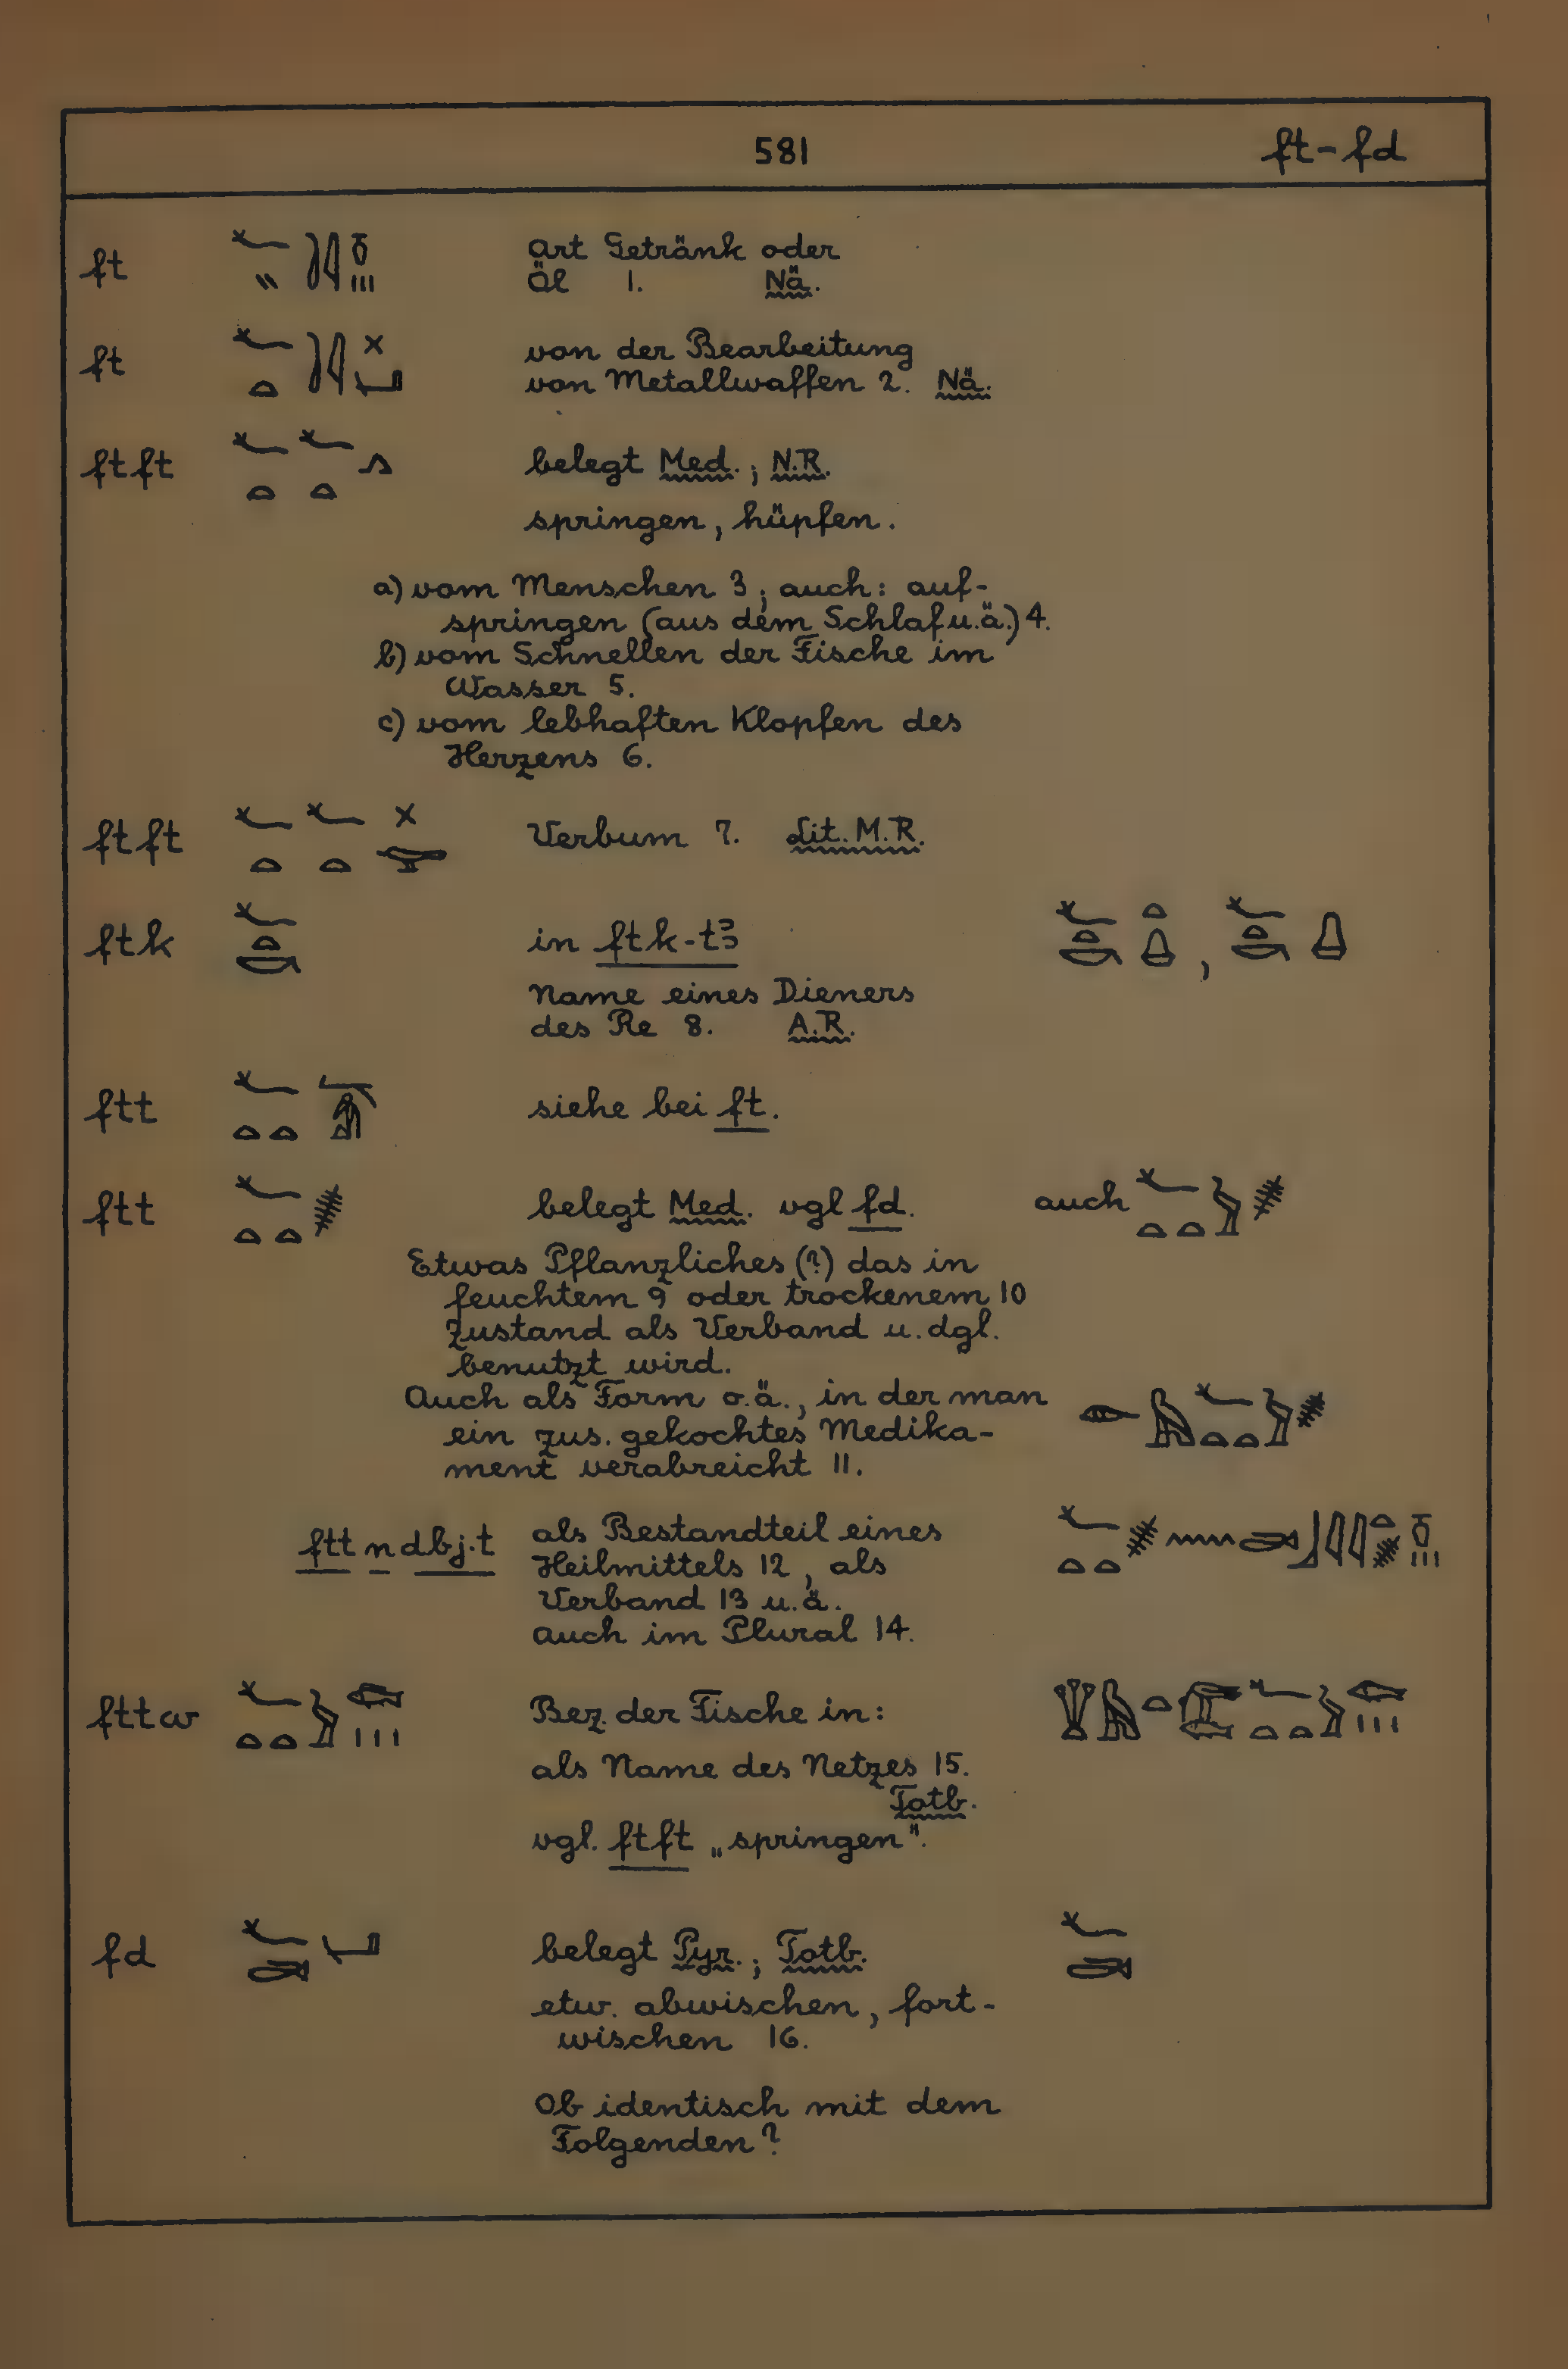 581 ft-fd
ft art Getränk oder
Öl 1. Nä.
ft von der Bearbeitung
von Metallwaffen 2. Nä.
ftft belegt Med.; N.R.
springen, hüpfen.
a) vom Menschen 3; auch: auf-
springen (aus dem Schlaf u.ä.) 4.
b) vom Schnellen der Fische im
Wasser 5.
c) vom lebhaften Klopfen des
Herzens 6.
ftft Verbum 7. Lit. M.R.
ftk in ftk-tꜣ
Name eines Dieners
des Re 8. A.R.
ftt siehe bei ft.
ftt belegt Med. vgl fd. auch
Etwas Pflanzliches (?) das in
feuchtem 9 oder trockenem 10
Zustand als Verband u. dgl.
benutzt wird.
Auch als Form o.ä., in der man
ein zus. gekochtes Medika-
ment verabreicht 11.
ftt n dbj.t als Bestandteil eines
Heilmittels 12, als
Verband 13 u.ä.
auch im Plural 14.
fttw Bez. der Fische in:
als Name des Netzes 15.
Totb.
vgl. ftft „springen".
fd belegt Pyr.; Totb.
etw. abwischen, fort-
wischen 16.
Ob identisch mit dem
Folgenden?